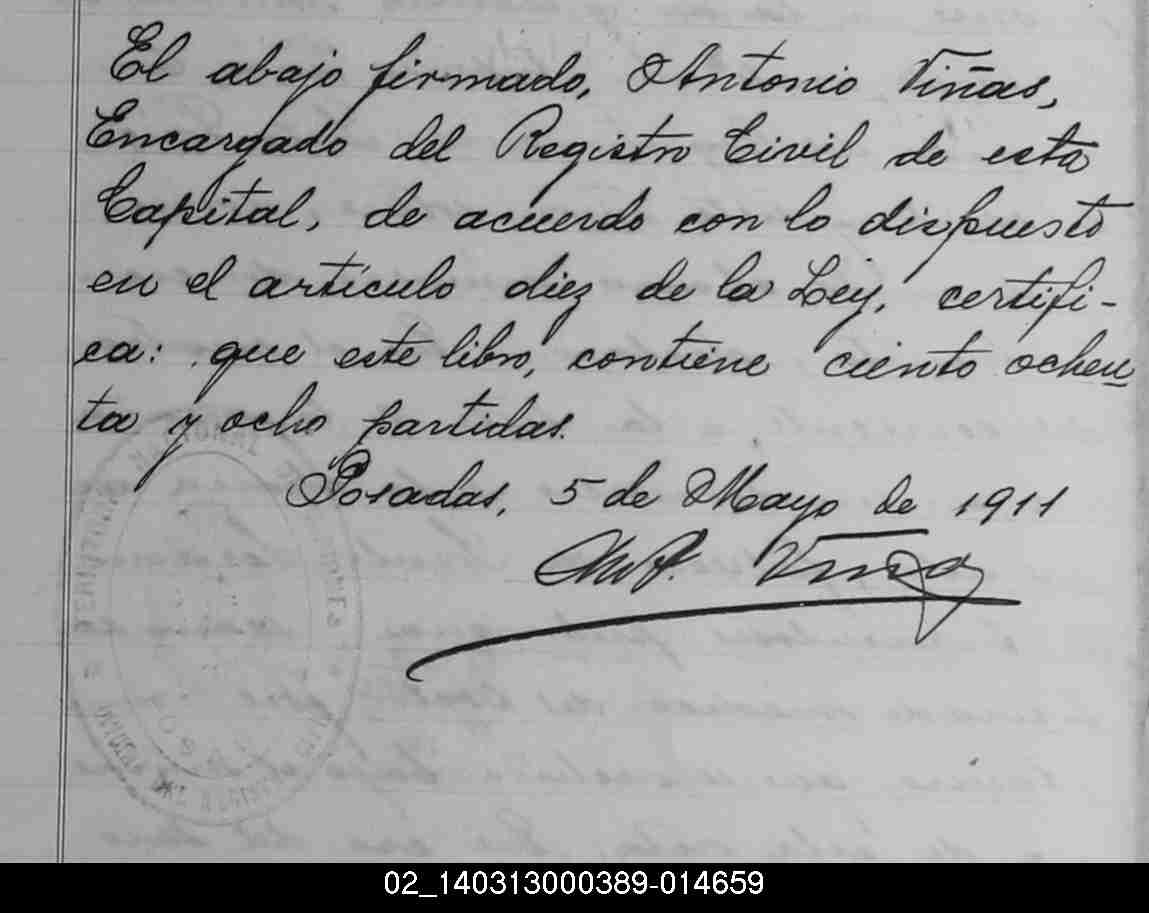 El abajo firmado, Antonio Viñas,
Encargado del Registro Civil de esta
Capital, de acuerdo con lo dispuesto
en el artículo diez de la Ley, certifi-
ca: que este libro, contiene ciento ochen
ta y ocho partidas.
Posadas, 5 de Mayo de 1911
Viñas
02_140313000389-014659